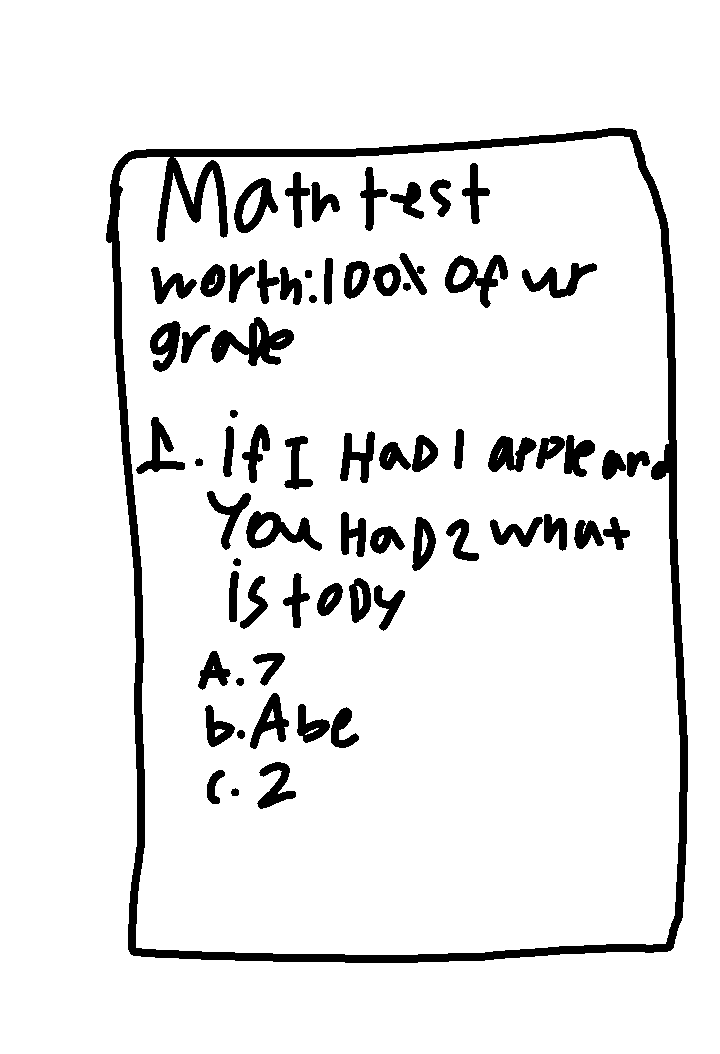 Math test
worth:100% Of ur
grade
1. if I HaD 1 apple and
You HaD 2 what
is toDy
A. 7
b. Abe
c. 2